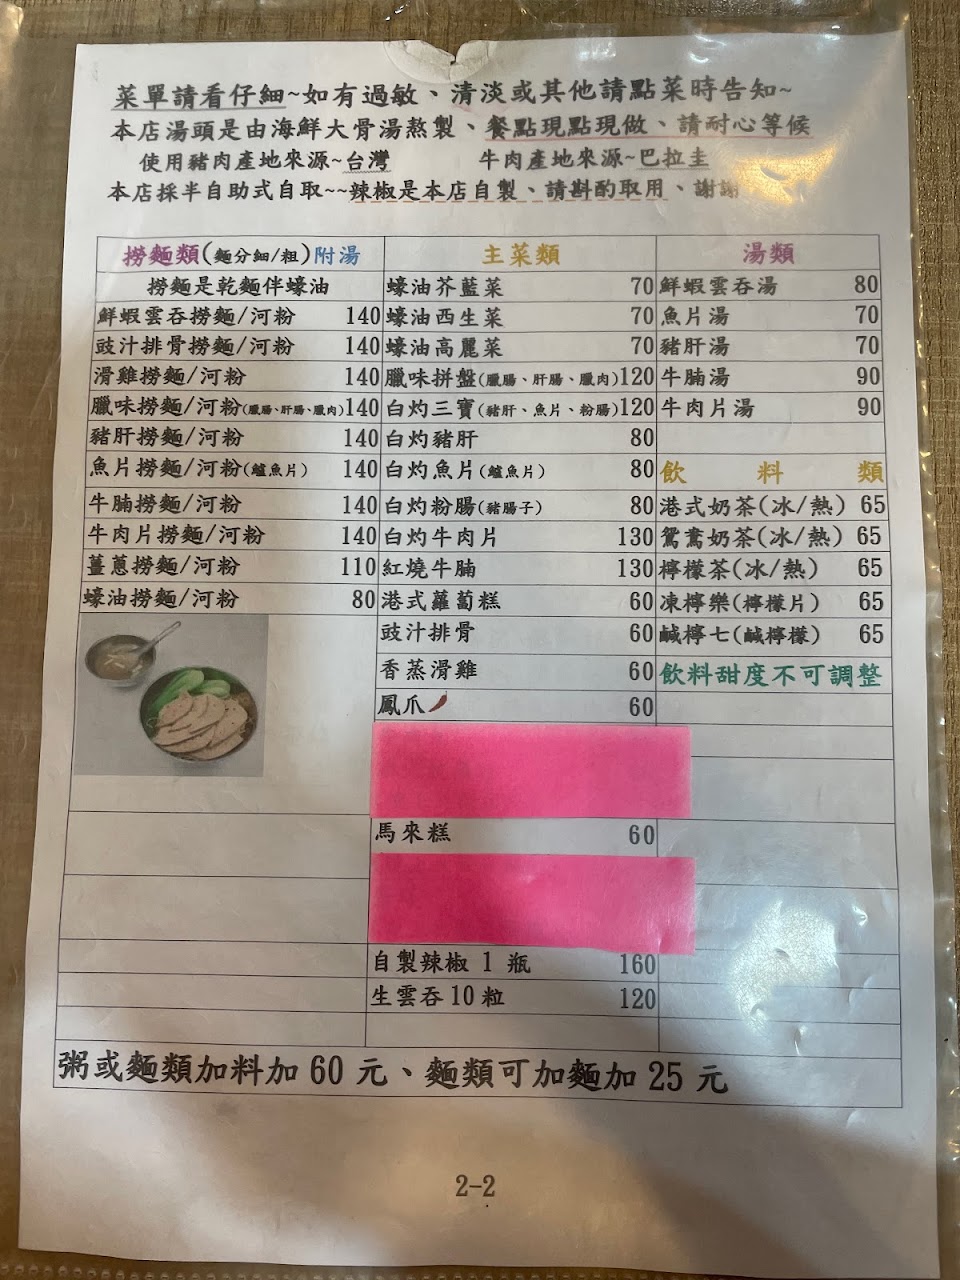 菜單請看仔細~如有過敏、清淡或其他請點菜時告知~
本店湯頭是由海鮮大骨湯熬製、餐點現點現做、請耐心等候
使用豬肉產地來源~台灣 牛肉產地來源~巴拉圭
本店採半自助式自取~~辣椒是本店自製、請斟酌取用、謝謝
撈麵類(麵分細/粗)附湯
撈麵是乾麵伴蠔油
鮮蝦雲吞撈麵/河粉 140
豉汁排骨撈麵/河粉 140
滑雞撈麵/河粉 140
臘味撈麵/河粉(臘腸、肝腸、臘肉) 140
豬肝撈麵/河粉 140
魚片撈麵/河粉(鱸魚片) 140
牛腩撈麵/河粉 140
牛肉片撈麵/河粉 140
薑蔥撈麵/河粉 110
蠔油撈麵/河粉 80
主菜類
蠔油芥藍菜 70
蠔油西生菜 70
蠔油高麗菜 70
臘味拼盤(臘腸、肝腸、臘肉) 120
白灼三寶(豬肝、魚片、粉腸) 120
白灼豬肝 80
白灼魚片(鱸魚片) 80
白灼粉腸(豬腸子) 80
白灼牛肉片 130
紅燒牛腩 130
港式蘿蔔糕 60
豉汁排骨 60
香蒸滑雞 60
鳳爪 60
馬來糕 60
自製辣椒 1 瓶 160
生雲吞 10 粒 120
湯類
鮮蝦雲吞湯 80
魚片湯 70
豬肝湯 70
牛腩湯 90
牛肉片湯 90
飲 料 類
港式奶茶(冰/熱) 65
鴛鴦奶茶(冰/熱) 65
檸檬茶(冰/熱) 65
凍檸樂(檸檬片) 65
鹹檸七(鹹檸檬) 65
飲料甜度不可調整
粥或麵類加料加 60 元、麵類可加麵加 25 元
2-2